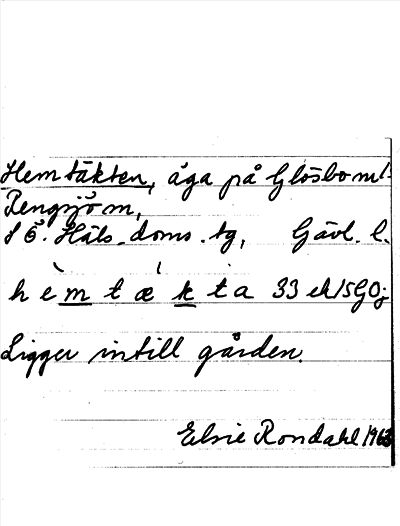 Hemtäkten, äga på Glösbo m/
Rengsjö m,
S Ö. Häls. doms. tg, Gävl. l.
hèmtækta 33 ek/SGO;
Ligger intill gården.
Elsie Rondahl 1963